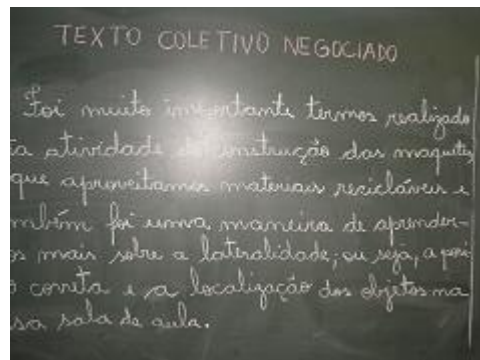 TEXTO COLETIVO NEGOCIADO
Foi muito importante termos realizado
ta atividade de construção das maquetes,
que aproveitamos materiais recicláveis e
mbém foi uma maneira de aprender-
os mais sobre a lateralidade, ou seja, a posi
o correta e a localização dos objetos na
sa sala de aula.